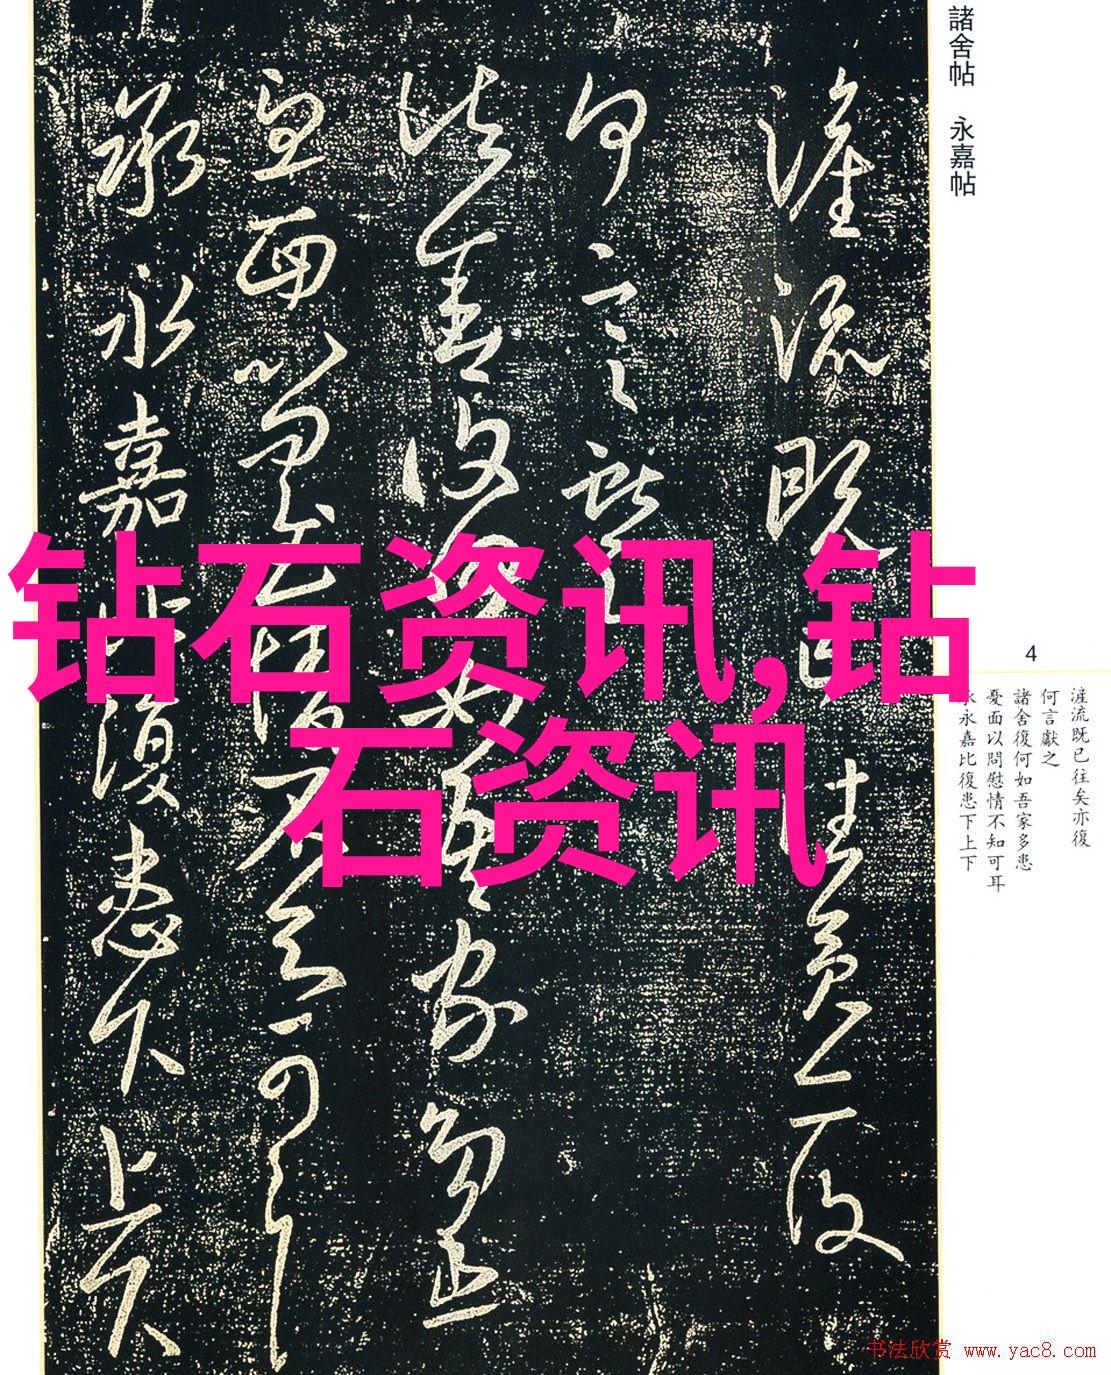 諸舍帖 永嘉帖
钻石资讯,钻
石资讯
4
漼流既已往矣亦復
何言獻之
諸舍復何如吾家多患
憂面以問慰情不知可耳
承永嘉比復患下上下
书法欣赏 www.yac8.com